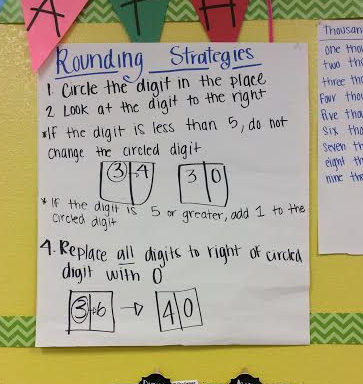 A T H
Rounding Strategies
1. Circle the digit in the place
2 Look at the digit to the right
*If the digit is less than 5, do not
change the circled digit
3 4 3 0
* If the digit is 5 or greater, add 1 to the
circled digit
4. Replace all digits to right of circled
digit with 0
3 6 → 4 0
one
two
three
four
five
six
seven
eight
nine